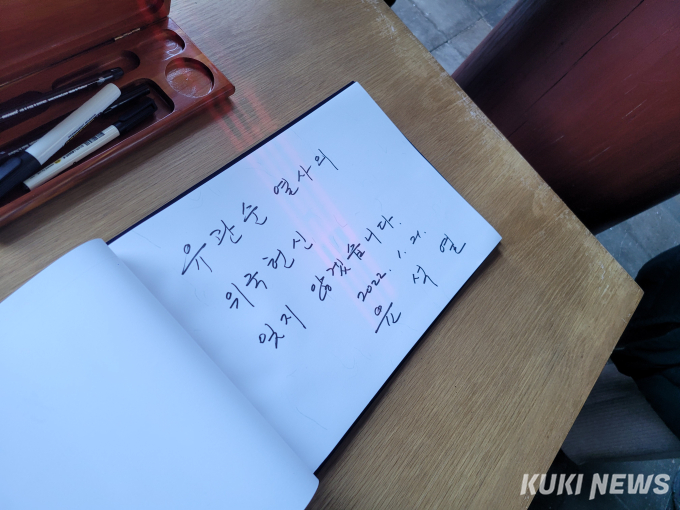 유관순 열사의
위국헌신
잊지 않겠습니다.
2022. 1. 21.
윤 석 열
KUKI NEWS